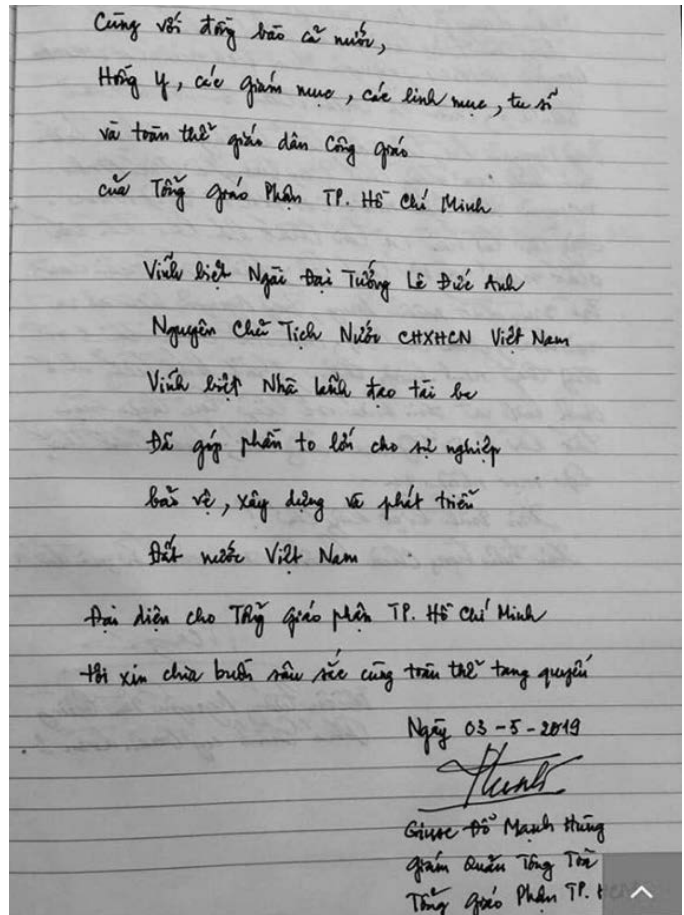 Cùng với đồng bào cả nước,
Hồng Y, các giám mục, các linh mục, tu sĩ
và toàn thể giáo dân Công giáo
của Tổng Giáo Phận TP. Hồ Chí Minh
Vĩnh biệt Ngài Đại Tướng Lê Đức Anh
Nguyên Chủ Tịch Nước CHXHCN Việt Nam
Vĩnh biệt Nhà lãnh đạo tài ba
Đã góp phần to lớn cho sự nghiệp
bảo vệ, xây dựng và phát triển
Đất nước Việt Nam
Đại diện cho Tổng Giáo phận TP. Hồ Chí Minh
tôi xin chia buồn sâu sắc cùng toàn thể tang quyến
Ngày 03-5-2019
Giuse Đỗ Mạnh Hùng
Giám Quản Tông Tòa
Tổng Giáo Phận TP. H